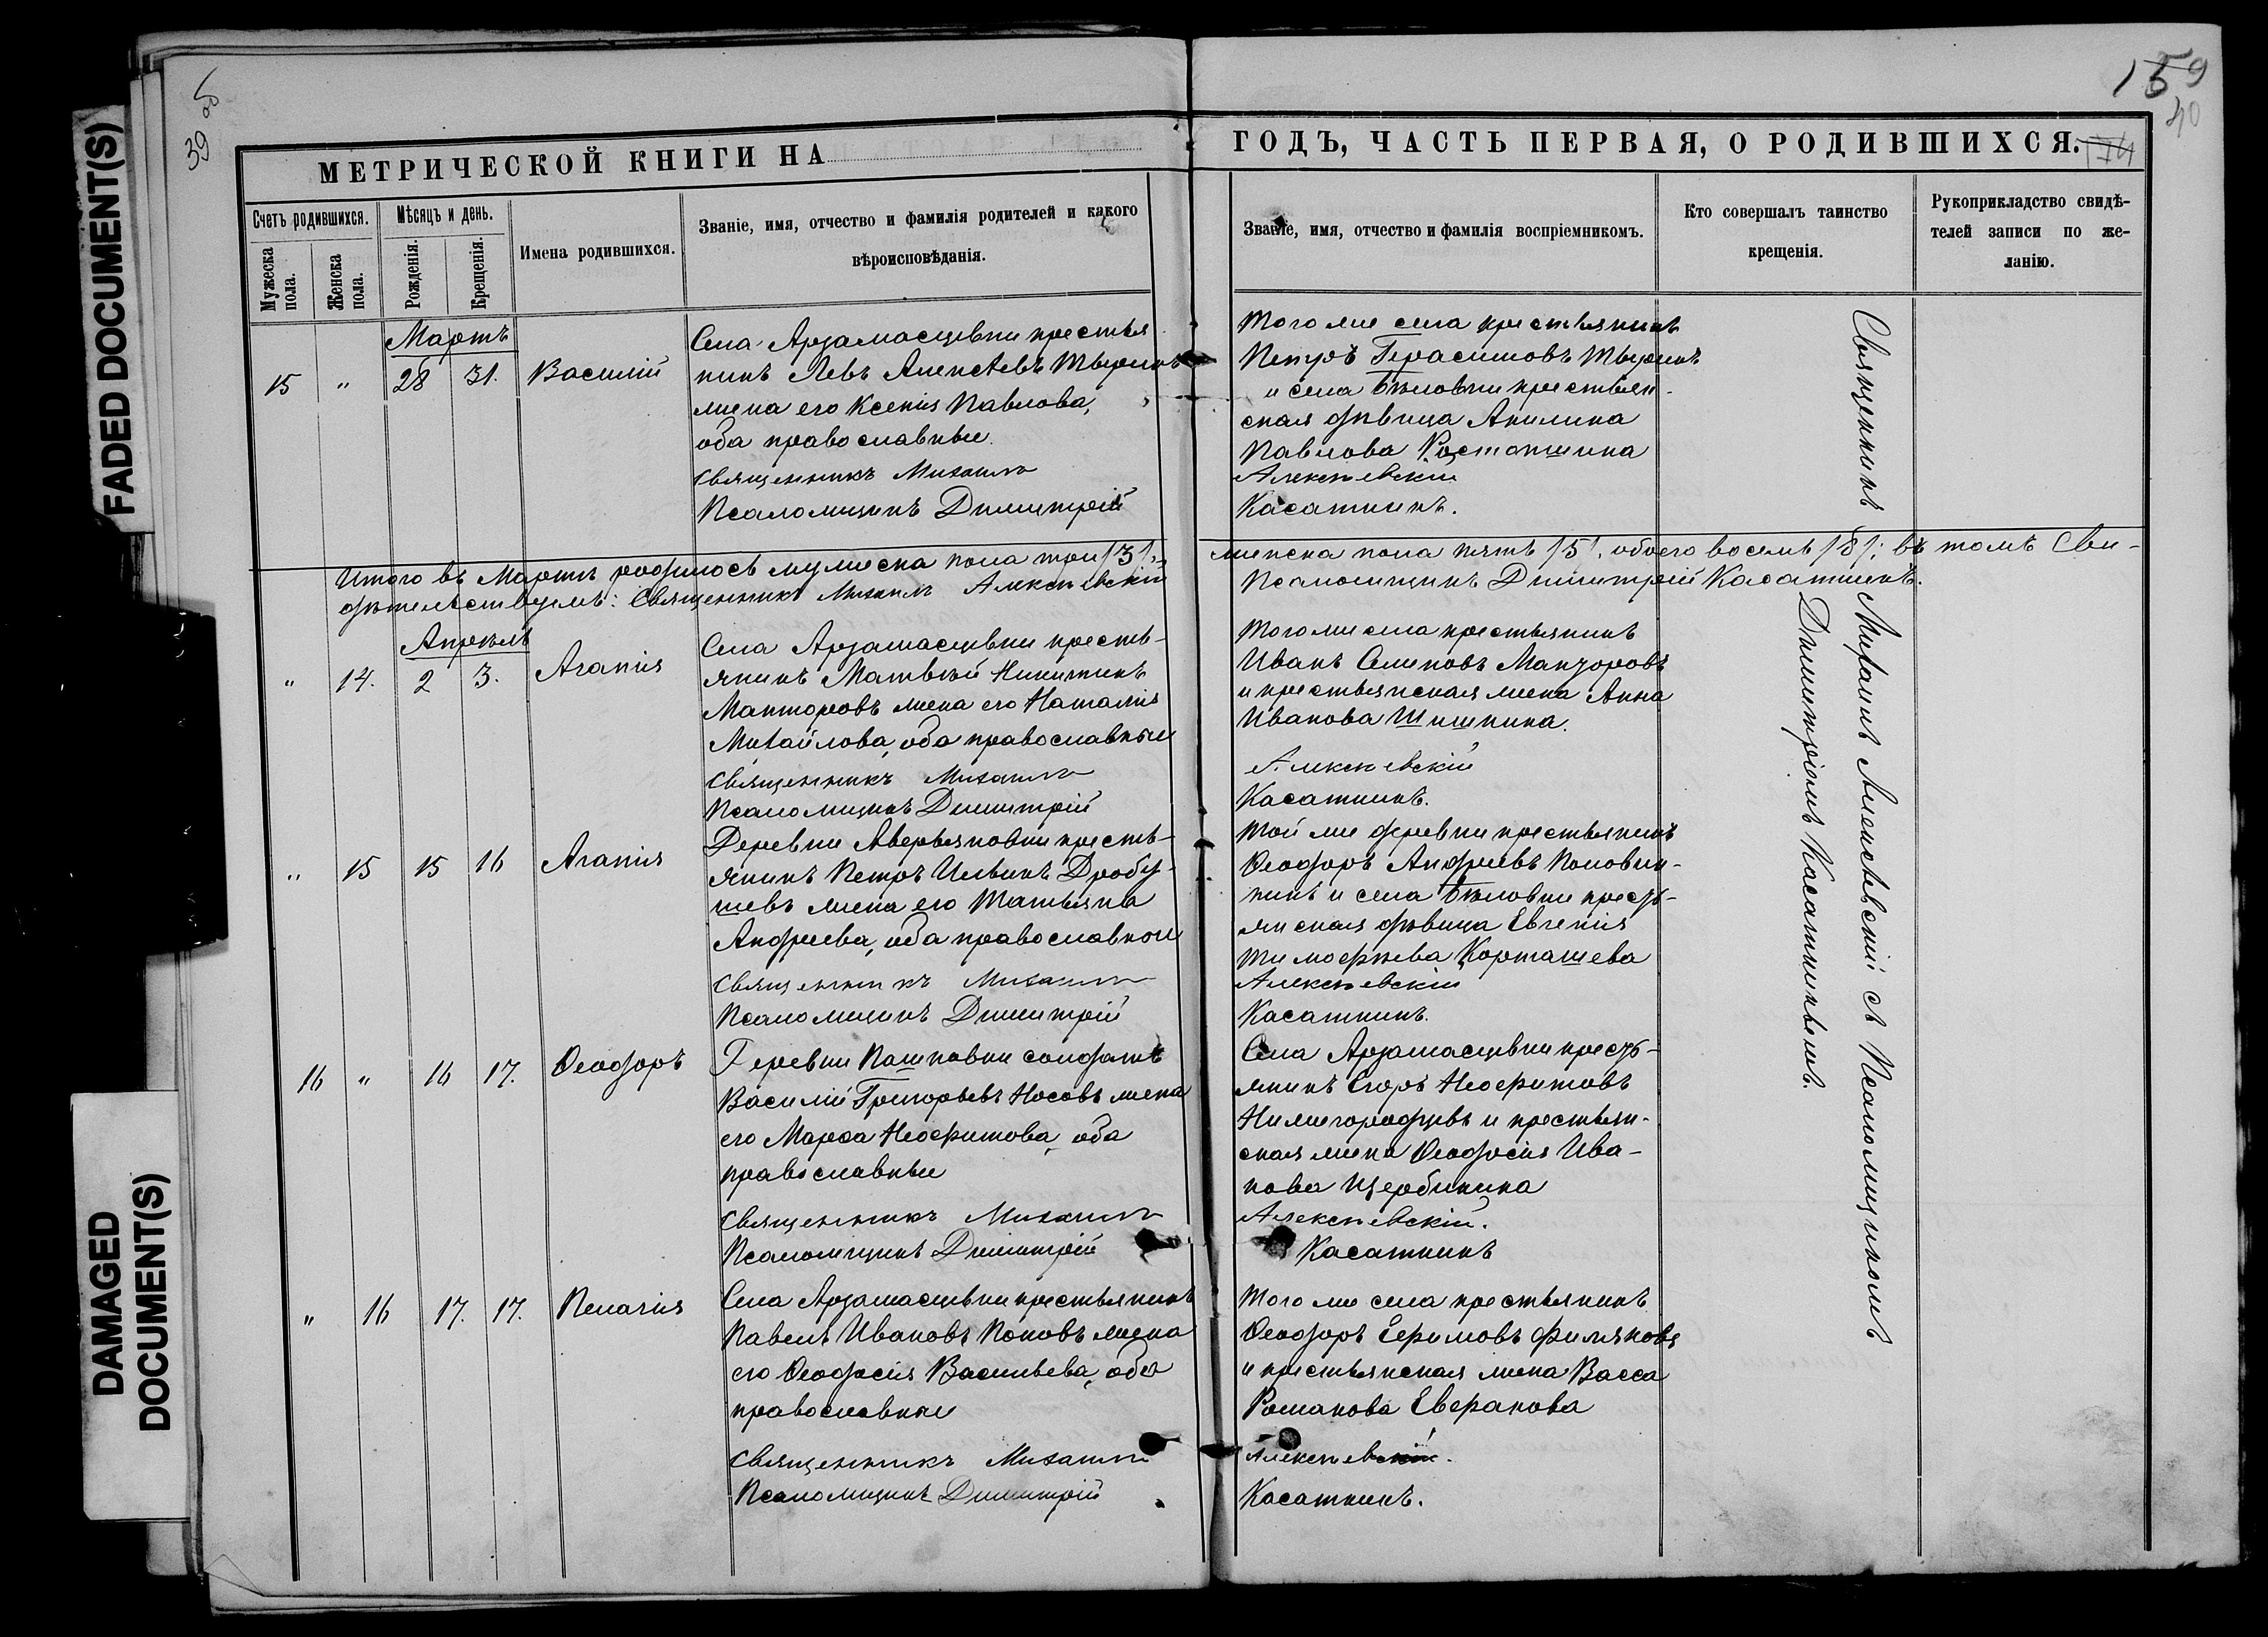 FADED DOCUMENT(S)
DAMAGED
DOCUMENT(S)
39 об
159
40
МЕТРИЧЕСКОЙ КНИГИ НА
ГОДЪ, ЧАСТЬ ПЕРВАЯ, О РОДИВШИХСЯ.
Счетъ родившихся.
Мужеска пола.
Женска пола.
Мѣсяцъ и день.
Рожденія.
Крещенія.
Имена родившихся.
Званіе, имя, отчество и фамилія родителей и какого
вѣроисповѣданія.
Званіе, имя, отчество и фамилія воспріемникомъ.
Кто совершалъ таинство
крещенія.
Рукоприкладство свидѣ-
телей записи по же-
ланію.
Мартъ
15 " 28 31. Василій
Села Арзамасцевки крестья
нинъ Левъ Алексѣевъ Тыринъ
жена его Ксенія Павлова,
оба православные.
Священникъ Михаилъ
Псаломщикъ Димитрій
Того же села крестьянинъ
Петръ Герасимовъ Тыринъ
и села Бѣловки крестьян-
ская дѣвица Акилина
Павлова Ростопшина
Алексѣевскій
Касаткинъ.
Итого въ Мартѣ родилось мужеска пола три /3/,
женска пола пять /5/, обоего восемь /8/; въ томъ Сви-
дѣтельствуемъ: Священникъ Михаилъ Алексѣевскій
Псаломщикъ Димитрій Касаткинъ.
Апрѣль
" 14. 2 3. Агапія
Села Арзамасцевки кресть-
янинъ Матвѣй Никитинъ
Манторовъ жена его Наталія
Михайлова, оба православные
Священникъ Михаилъ
Псаломщикъ Димитрій
Того же села крестьянинъ
Иванъ Семеновъ Манзоровъ
и крестьянская жена Анна
Иванова Шишкина.
Алексѣевскій
Касаткинъ.
" 15 15 16 Агапія
Деревни Аверьяновки кресть-
янинъ Петръ Ильинъ Дробу-
шевъ жена его Татьяна
Андреева, оба православные
Священникъ Михаилъ
Псаломщикъ Димитрій
Той же деревни крестьянинъ
Ѳеодоръ Андреевъ Половин-
кинъ и села Бѣловки кресть-
янская дѣвица Евгенія
Тимофѣева Корташева
Алексѣевскій
Касаткинъ.
16 " 16 17. Ѳеодоръ
Деревни Пашковки солдатъ
Василій Григорьевъ Носовъ жена
его Марѳа Неофитова, оба
православные
Священникъ Михаилъ
Псаломщикъ Димитрій
Села Арзамасцевки кресть-
янинъ Егоръ Неофитовъ
Нижегородцевъ и крестьян-
ская жена Ѳеодосія Ива-
нова Щербинина
Алексѣевскій.
Касаткинъ
" 16 17. 17. Пелагія
Села Арзамасцевки крестьянинъ
Павелъ Ивановъ Поповъ жена
его Ѳеодосія Васильева, оба
православные
Священникъ Михаилъ
Псаломщикъ Димитрій
Того же села крестьянинъ
Ѳеодоръ Ефимовъ Филяновъ
и крестьянская жена Васса
Романова Еверанова
Алексѣевскій.
Касаткинъ.
Священникъ Михаилъ Алексѣевскій съ Псаломщикомъ
Димитріемъ Касаткинымъ.